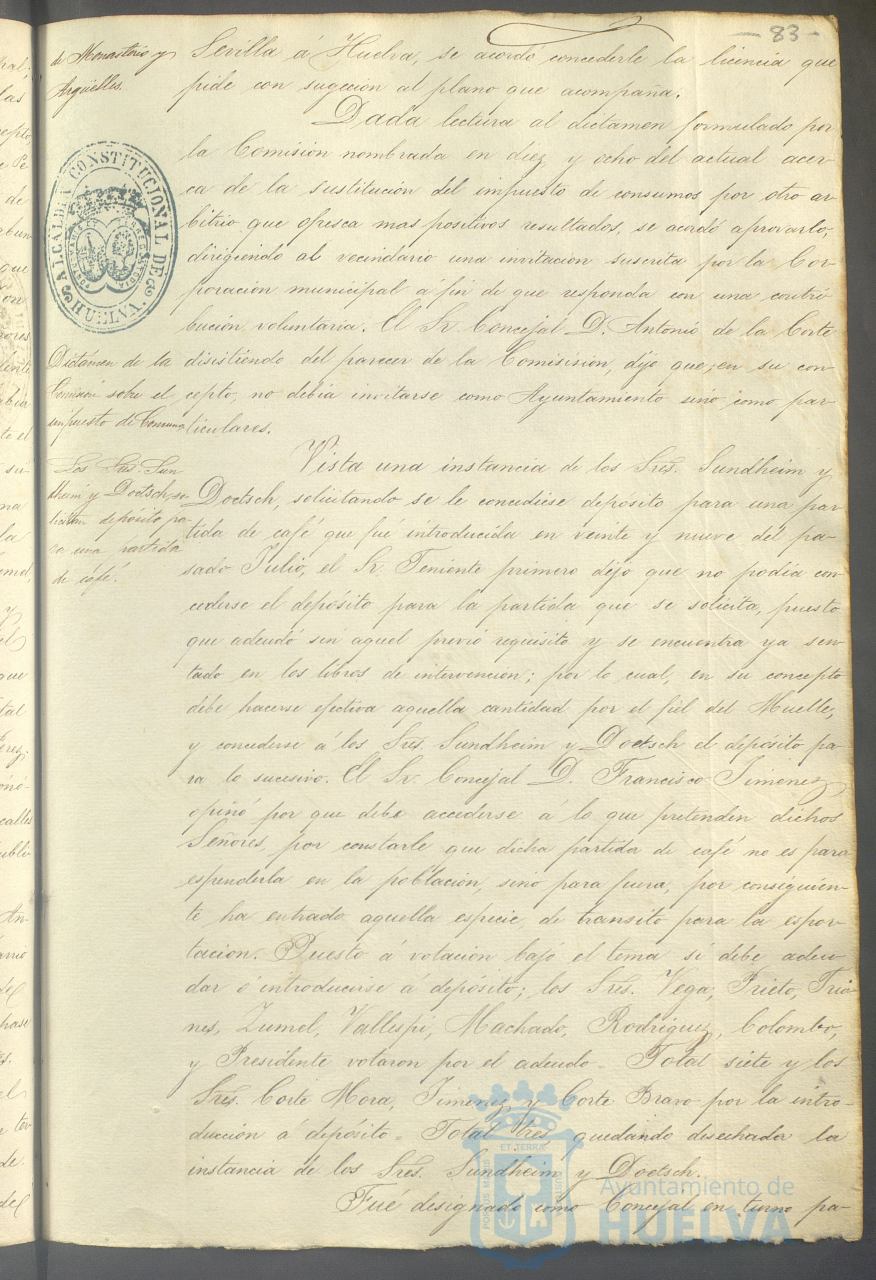 83
de Monasterio y
Argüelles.
Sevilla á Huelva, se acordó concederle la licencia que
pide con sugeccion al plano que acompaña.
Dada lectura al dictamen formulado por
la Comisión nombrada en diez y ocho del actual acer-
ca de la sustitución del impuesto de consumos por otro ar-
bitrio que ofresca mas positivos resultados, se acordó aprovarlo,
dirigiendo al vecindario una invitacion suscrita por la Cor-
poración municipal a fin de que responda con una contri-
bución voluntaria. El Sr. Concejal D. Antonio de la Corte
disistiendo del parecer de la Comisisión, dijo que, en su con-
cepto, no debia invitarse como Ayuntamiento sino como par-
ticulares.
ALCALDIA CONSTITUCIONAL DE HUELVA
Dictámen de la
Comision sobre el
impuesto de Consumos
Vista una instancia de los Sres. Sundheim y
Doetsch, solicitando se le concediese depósito para una par-
tida de café que fué introducida en veinte y nueve del pa-
sado Julio, el Sr. Teniente primero dijo que no podia con-
cederse el depósito para la partida que se solicita, puesto
que adeudó sin aquel previo requisito y se encuentra ya sen-
tado en los libros de intervencion; por lo cual, en su concepto
debe hacerse efectiva aquella cantidad por el fiel del Muelle,
y concederse á los Sres. Sundheim y Doetsch el depósito pa-
ra lo sucesivo. El Sr. Concejal D. Francisco Jimenez
opinó por que debe accederse á lo que pretenden dichos
Señores, por constarle que dicha partida de café no es para
espenderla en la población, sino para fuera, por consiguien-
te ha entrado aquella especie de tránsito para la espor-
tacion. Puesto á votación bajo el tema si debe adeu-
dar ó introducirse á depósito; los Sres. Vega, Prieto, Tria-
nes, Zumel, Vallespi, Machado, Rodriguez, Colombo,
y Presidente votaron por el adeudo. Total siete y los
Sres. Corte Mora, Jimenez y Corte Bravo por la intro-
duccion á depósito. Total tres, quedando desechada la
instancia de los Sres. Sundheim y Doetsch.
Fué designado como Concejal en turno pa-
Los Sres. Sun
dheim y Doetsch, so-
licitan depósito pa-
ra una partida
de café.
Ayuntamiento de
HUELVA